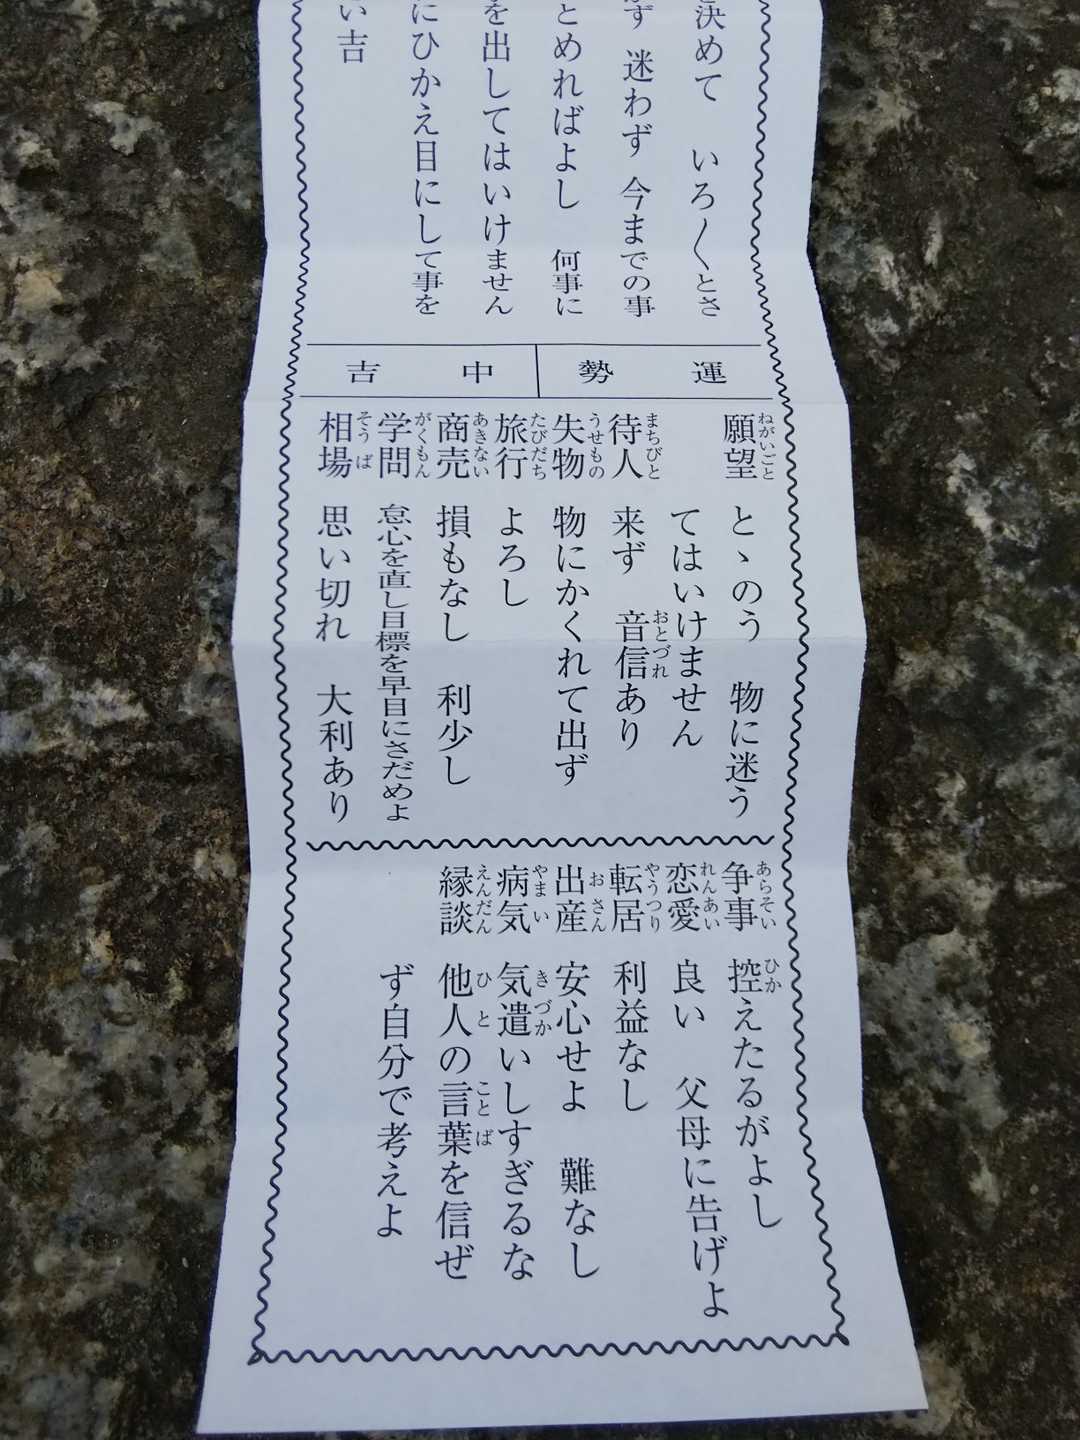 決めて いろ〱とさ
ず 迷わず 今までの事
とめればよし 何事に
を出してはいけません
にひかえ目にして事を
い吉
運勢 中吉
願望 ねがいごと とゝのう 物に迷う
てはいけません
待人 まちびと 来ず 音信あり おとづれ
失物 うせもの 物にかくれて出ず
旅行 たびだち よろし
商売 あきない 損もなし 利少し
学問 がくもん 怠心を直し目標を早目にさだめよ
相場 そうば 思い切れ 大利あり
争事 あらそい 控えたるがよし ひか
恋愛 れんあい 良い 父母に告げよ
転居 やうつり 利益なし
出産 おさん 安心せよ 難なし
病気 やまい 気遣いしすぎるな きづか
縁談 えんだん 他人の言葉を信ぜ ひと ことば
ず自分で考えよ